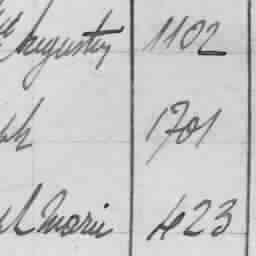 Augustin 1102
1701
Marie 423